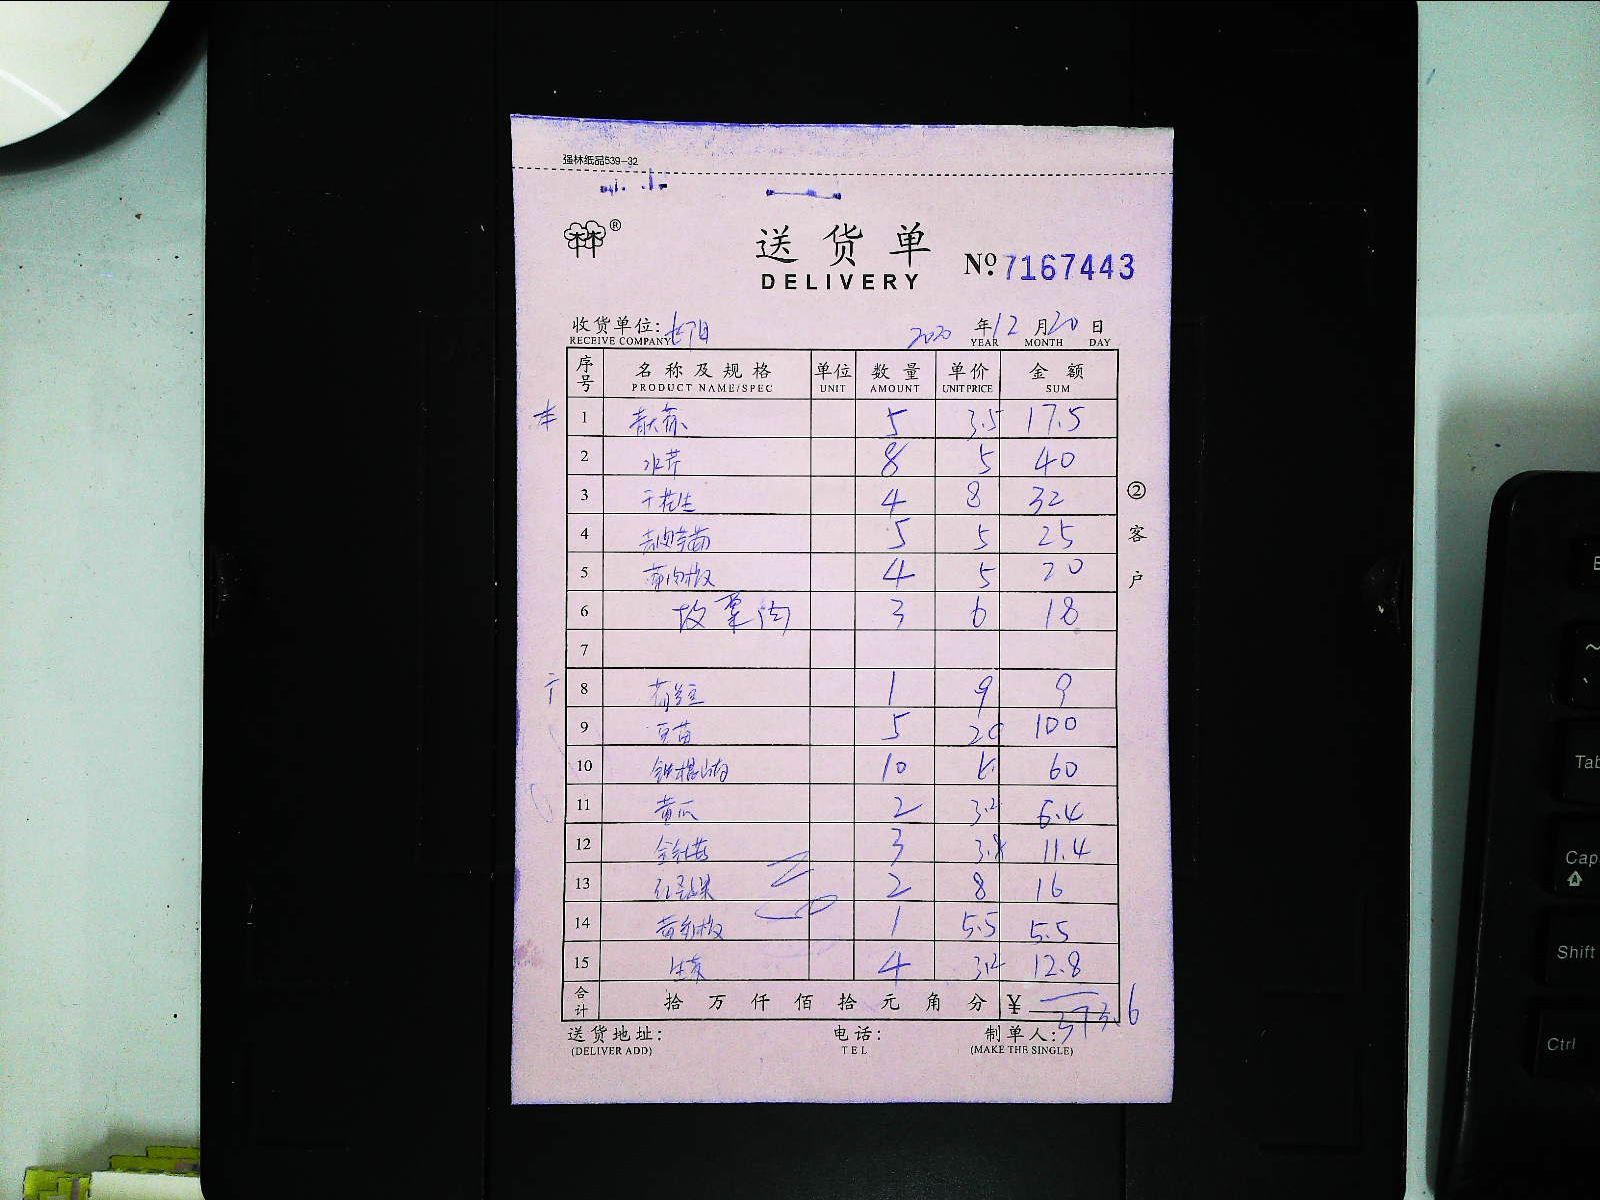 强林纸品539-32
林®
送货单
DELIVERY
№ 7167443
收货单位:
RECEIVE COMPANY
2020 年 12 月 20 日
YEAR MONTH DAY
序号 名称及规格 单位 数量 单价 金额
PRODUCT NAME/SPEC UNIT AMOUNT UNIT PRICE SUM
1 5 3.5 17.5
2 水芹 8 5 40
3 干花生 4 8 32
4 5 5 25
5 4 5 20
6 3 6 18
7
8 1 9 9
9 豆苗 5 20 100
10 铁棍山药 10 6 60
11 黄瓜 2 3.2 6.4
12 3 3.8 11.4
13 2 8 16
14 1 5.5 5.5
15 生菜 4 3.2 12.8
合计 拾万仟佰拾元角分 ¥ 373.6
②客户
送货地址: 电话: 制单人:
(DELIVER ADD) TEL (MAKE THE SINGLE)
Tab
Cap
Shift
Ctrl